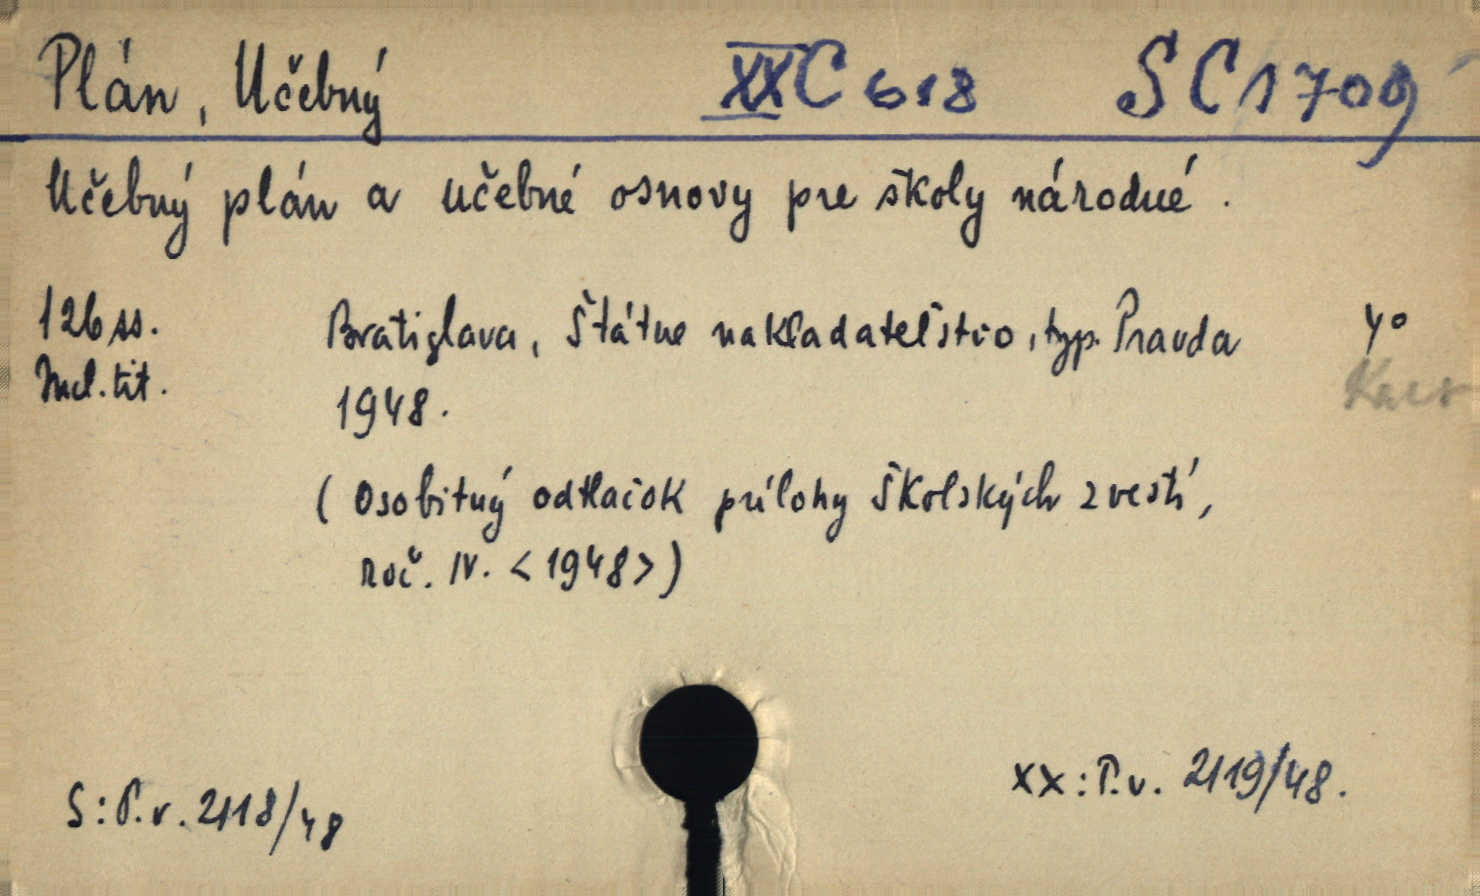 Plán, Učebný XXC 618 SC1709
Učebný plán a učebné osnovy pre školy národné.
126 ss. Bratislava, Štátne nakladateľstvo, typ. Pravda 4°
Incl. tit. 1948.
(Osobitný odtlačok prílohy Školských zvestí,
roč. IV. <1948>)
S: P.v. 2118/48 XX: P.v. 2119/48.